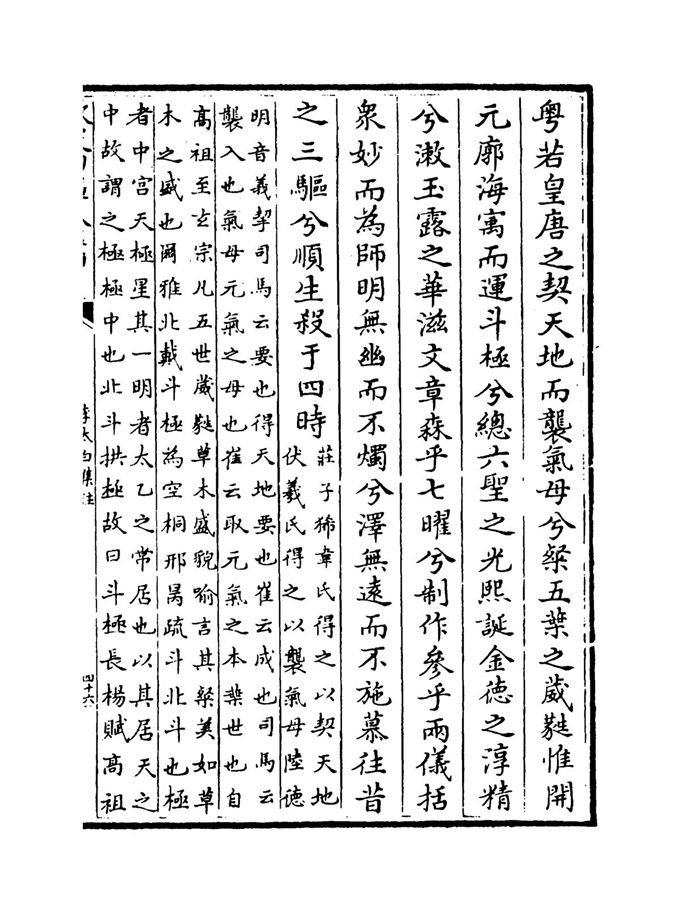 粤若皇唐之契天地而襲氣母兮粲五葉之葳蕤惟開
元廓海寓而運斗極兮總六聖之光熙誕金徳之淳精
兮漱玉露之華滋文章森乎七曜兮制作參乎兩儀括
衆妙而為師明無幽而不燭兮澤無遠而不施慕往昔
之三驅兮順生殺于四時
莊子狶韋氏得之以契天地
伏羲氏得之以襲氣母陸徳
明音義挈司馬云要也得天地要也崔云成也司馬云
襲入也氣母元氣之母也崔云取元氣之本葉世也自
髙祖至玄宗凡五世葳蕤草木盛貌喻言其粲美如草
木之盛也爾雅北戴斗極為空桐邢昺疏斗北斗也極
者中宫天極星其一明者太乙之常居也以其居天之
中故謂之極極中也北斗拱極故曰斗極長楊賦髙祖
李太白集注
四十六